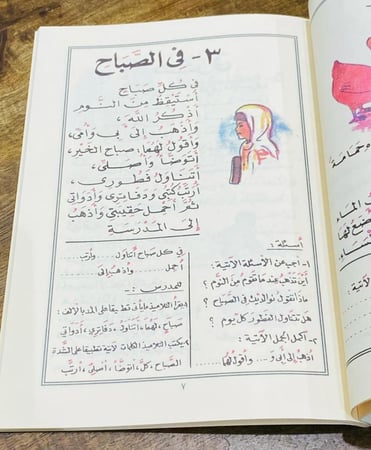 ٣- في الصَّبَاح
في كلِّ صباحٍ
أستيقظ مِنَ النَّوم
أذكرُ اللّه،
وأذهبُ إلى أبي وأمّي،
وأقول لهما: صباح الخير،
أتوضّأ وأصلّي،
أتناول فطوري،
أرتّب كتبي ودفاتري وأدواتي
ثمّ أحمل حقيبتي وأذهب
إلى المدرسة
أسئلة:
١- أجب عن الأسئلة الآتية:
أين تذهب عندما تقوم من النّوم؟
ماذا تقول لوالديك في الصباح؟
هل تتناول الفطور كلّ يوم؟
٢- أكمل الجمل الآتية:
أذهب إلى أبي و.... وأقول لهما......
في كل صباح أتناول ..... وأرتب .....
أحمل ...... وأذهب إلى ......
للمدرس:-
١- يقرأ التلاميذ ما يأتي تطبيقا على المد بالألف:
صباح، لهما، أتناول، دفاتري، أدواتي
٢- يكتب التلاميذ الكلمات الآتية تطبيقا على الشدة
الصّباح، كلّ، أتوضّأ، أصلّي، أرتّب
٧
وحمامة
الماء
لها